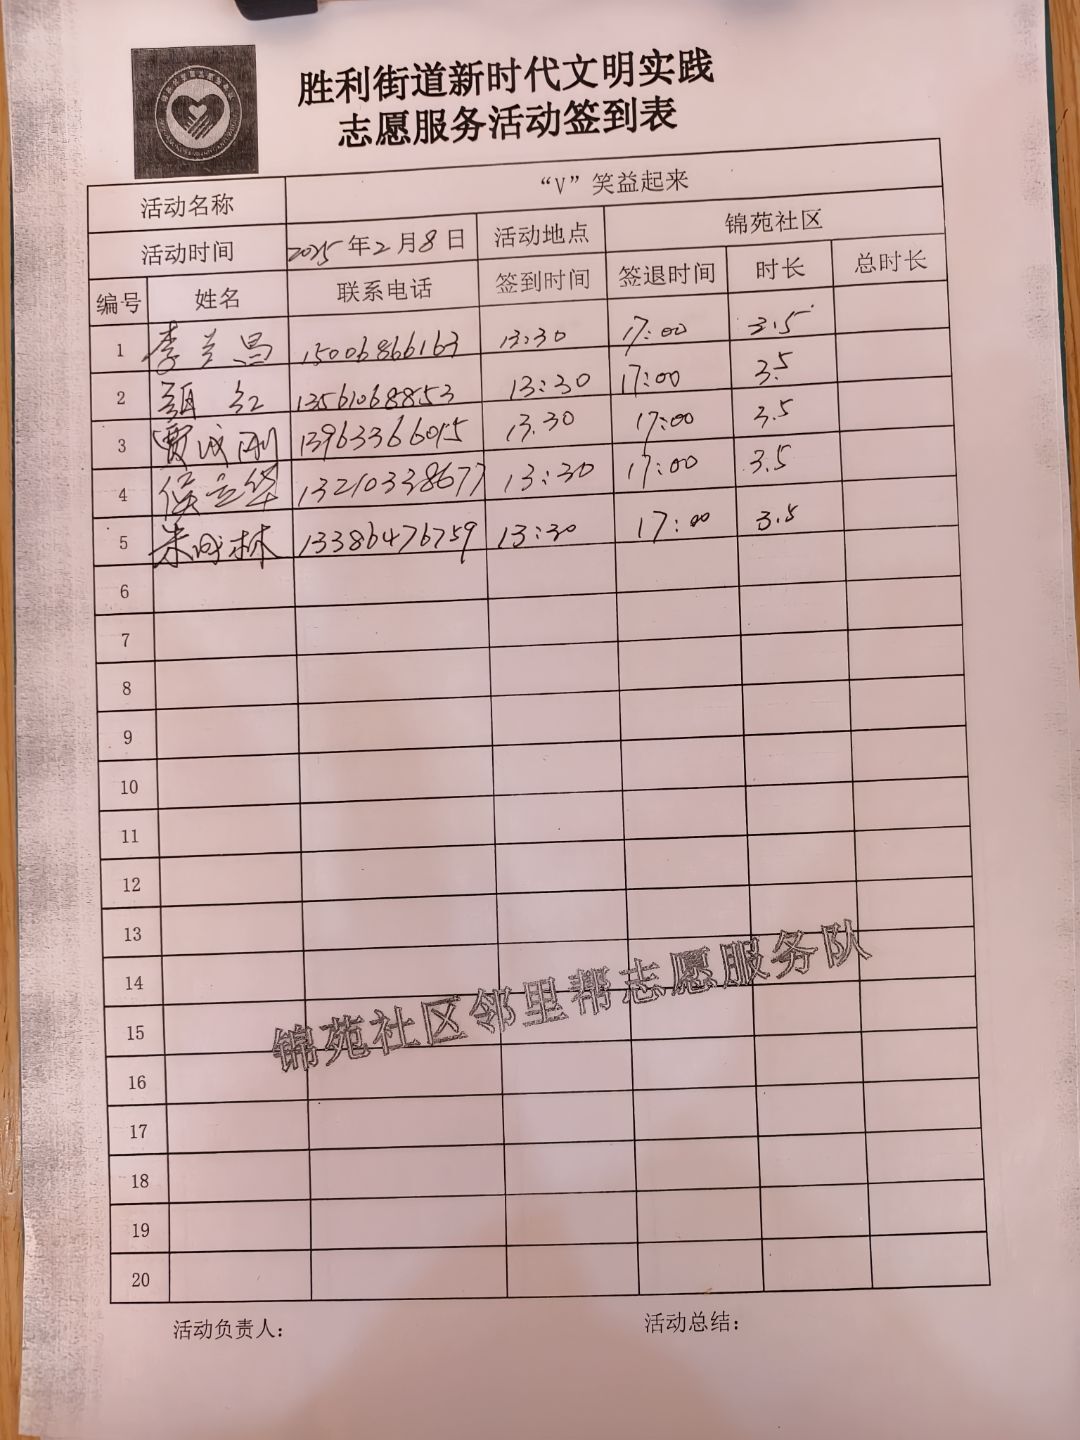 胜利街道新时代文明实践
志愿服务活动签到表
活动名称 “V”笑益起来
活动时间 2025年2月8日 活动地点 锦苑社区
编号 姓名 联系电话 签到时间 签退时间 时长 总时长
1 李兰昌 15006866163 13:30 17:00 3.5
2 红 13561068853 13:30 17:00 3.5
3 贾成刚 13963366015 13.30 17:00 3.5
4 侯立华 13210338677 13:30 17:00 3.5
5 朱成林 13386476759 13:30 17:00 3.5
6
7
8
9
10
11
12
13
14
15
16
17
18
19
20
锦苑社区邻里帮志愿服务队
活动负责人： 活动总结：